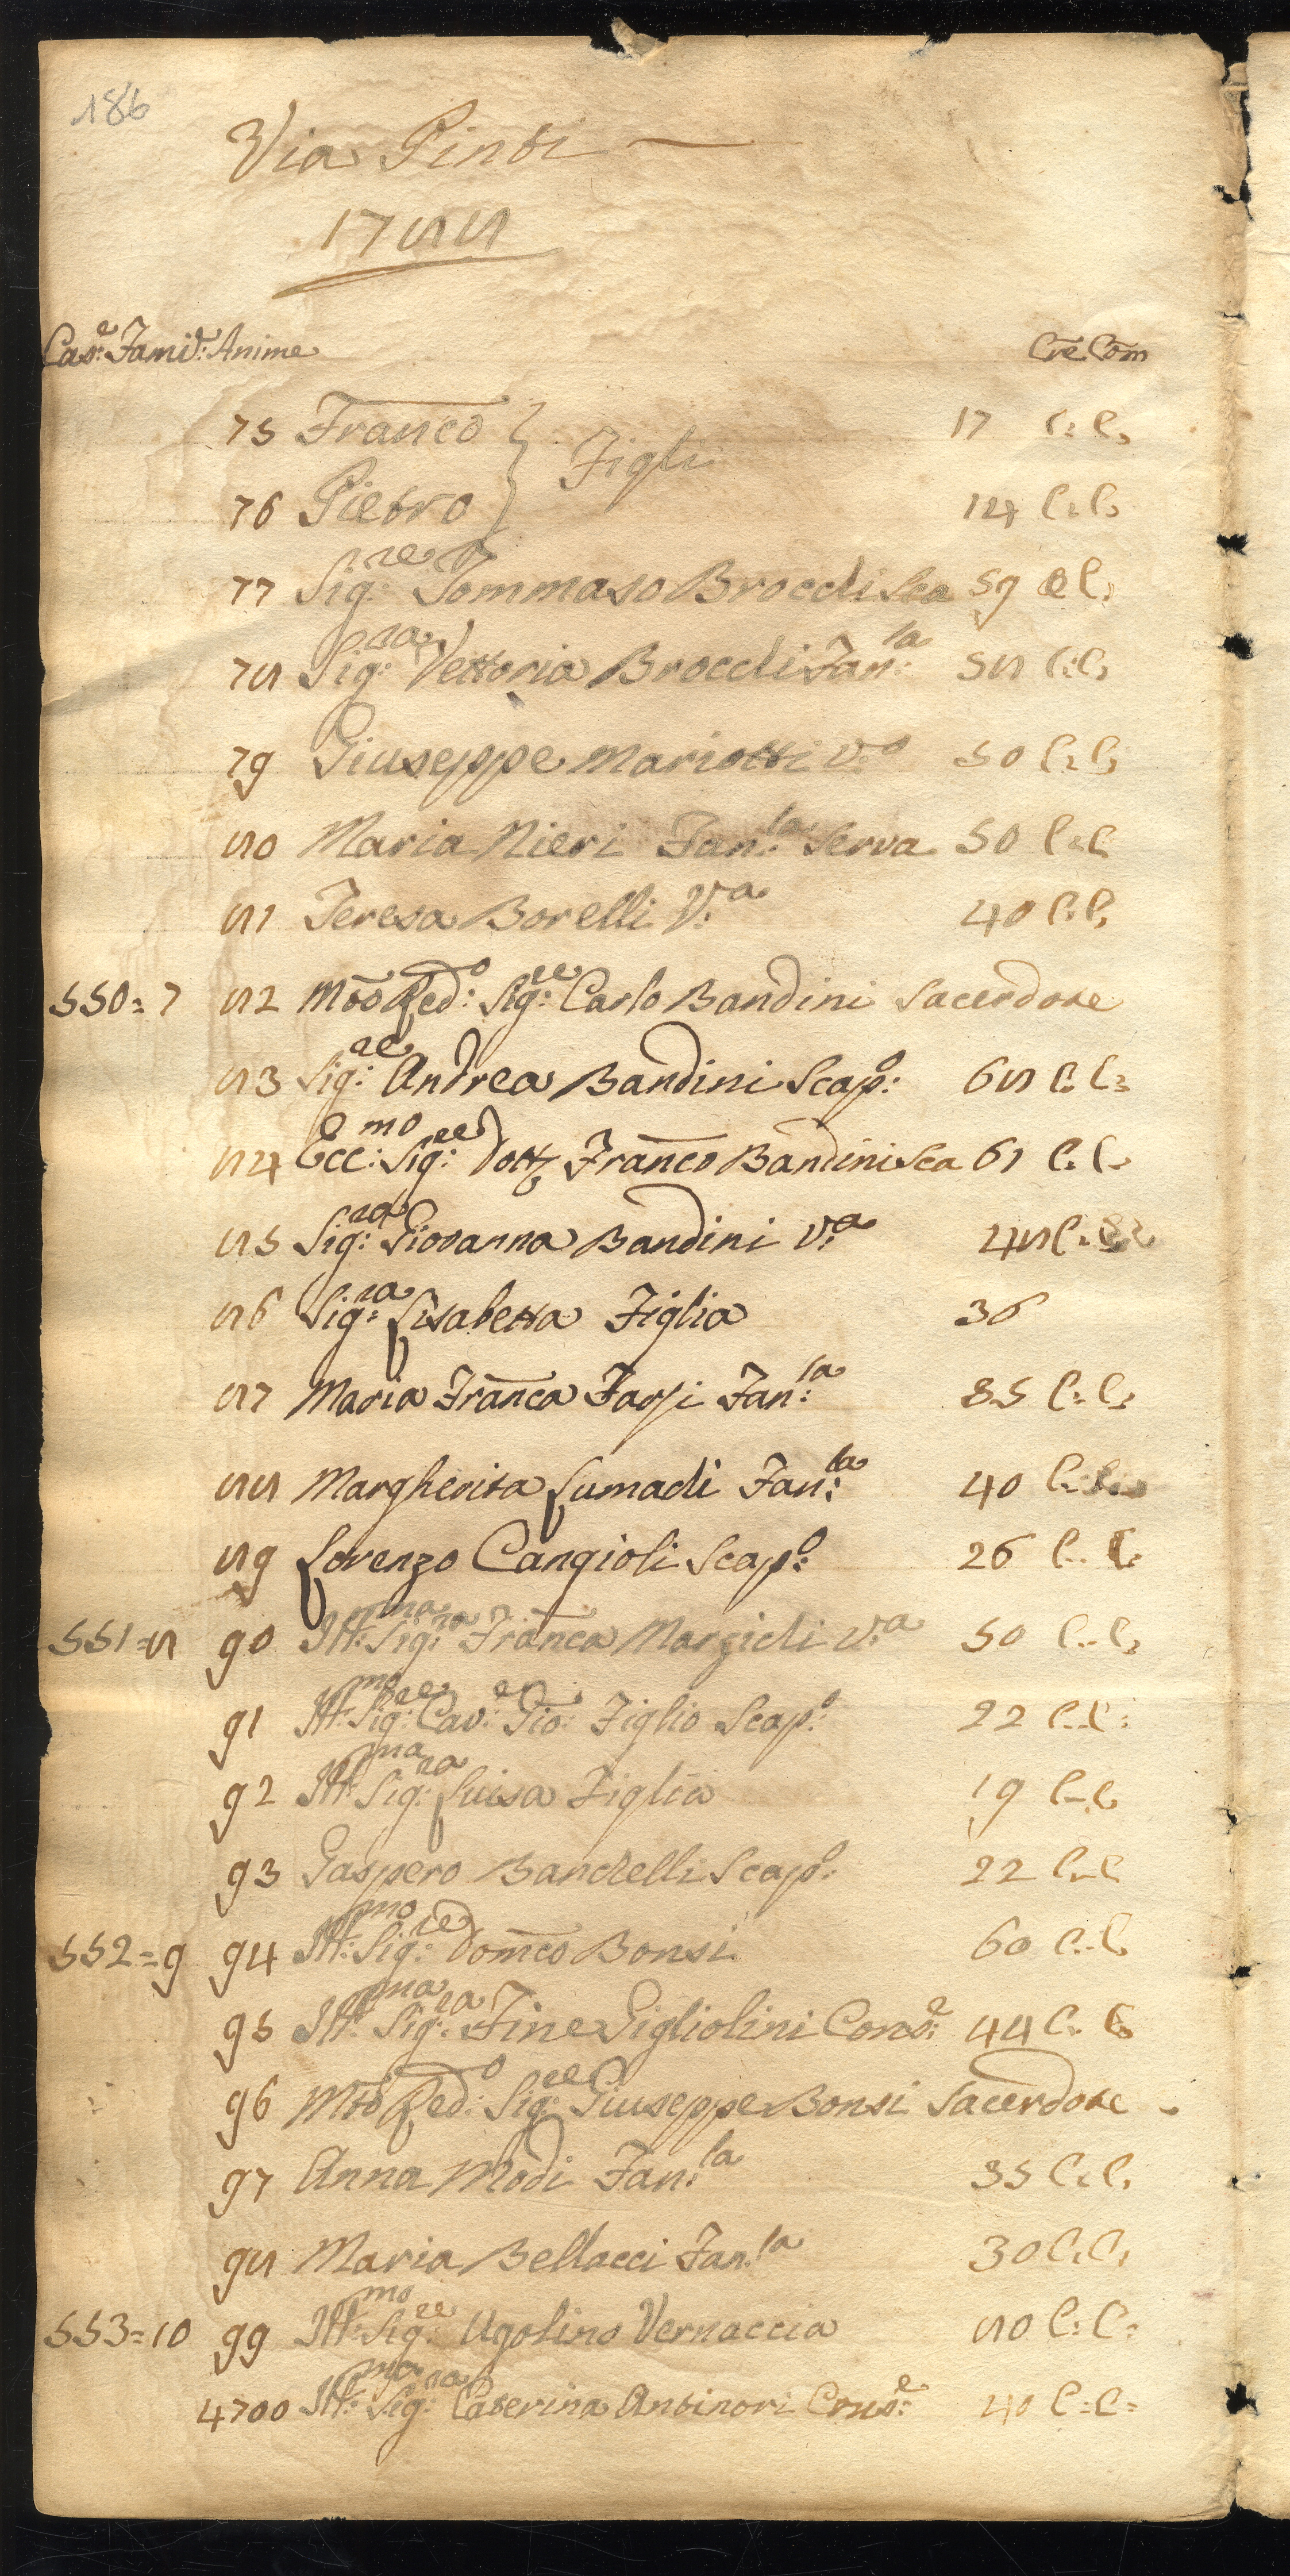 186
Via Pinti
1788
Cas:e Fami:e Anime Cre Com
75 Franco 17 C: C:
Figli
76 Pietro 14 C: C:
77 Sig:re Tommaso Brocchi Sca 59 C C:
78 Sig:ra Vettoria Brocchi Fan:la 58 C: C:
79 Giuseppe Mariotti V:o 50 C: C:
80 Maria Nieri Fan:la Serva 50 C: C
81 Teresa Borelli V:a 40 C: C:
550=7 82 Mōo Red:o Sig:re Carlo Bandini Sacerdote
83 Sig:re Andrea Bandini Scap:o 68 C: C:
84 Ecc:mo Sig:re Dott Franco Bandini Sca 61 C: C:
85 Sig:ra Giovanna Bandini V:a 48 C:
86 Sig:ra Lisabetta Figlia 36
87 Maria Franca Farsi Fan:la 35 C: C:
88 Margherita Lumachi Fan:la 40 C:
89 Lorenzo Cangioli Scap:o 26 C: C:
551=8 90 Ill:ma Sig:ra Franca Marzichi V:a 50 C: C:
91 Ill:mo Sig:re Cav:e Gio: Figlio Scap:o 22 C: C:
92 Ill:ma Sig:ra Luisa Figlia 19 C: C
93 Gaspero Banchelli Scap:o 22 C: C
552=9 94 Ill:mo Sig:re Domco Bonsi 60 C: C
95 Ill:ma Sig:ra Fine Gigliolini Cons:e 44 C: C
96 Mto Red:o Sig:re Giuseppe Bonsi Sacerdote
97 Anna Modi Fan:la 35 C: C:
98 Maria Bellacci Fan:la 30 C: C:
553=10 99 Ill:mo Sig:re Ugolino Vernaccia 80 C: C:
4700 Ill:ma Sig:ra Caterina Antinori Cons:e 40 C: C: